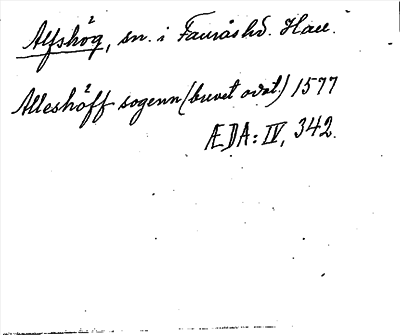 Alfshög, sn. i Fauråshd. Hall.
Alleshöff sogenn (brevet odat.) 1577
ÆDA: IV, 342.